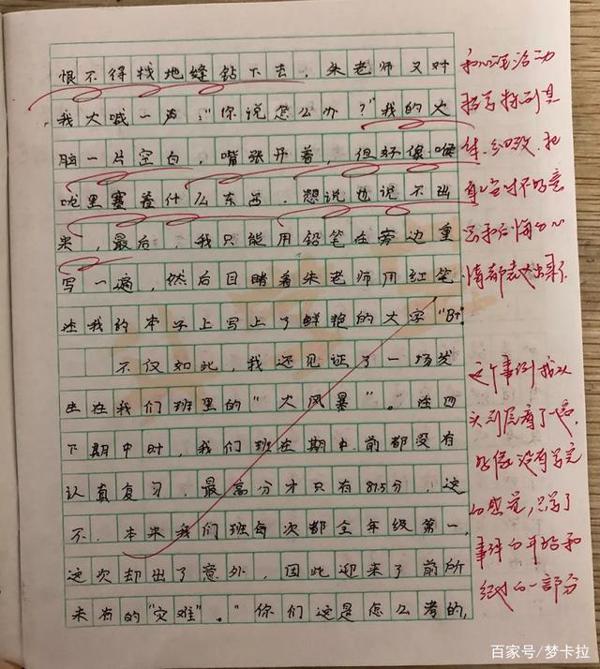 恨不得找地缝钻下去，朱老师又对
我大喊一声："你说怎么办？"我的大
脑一片空白，嘴张开着，但好像喉
咙里塞着什么东西，想说也说不出
来，最后，我只能用铅笔在旁边重
写一遍，然后目睹着朱老师用红笔
在我的本子上写上了鲜艳的大字"B+
不仅如此，我还见证了一场发
生在我们班里的"大风暴"。在四
下期中时，我们班在期中前都没有
认真复习，最高分才只有87.5分，这
不，本来我们班每次都全年级第一，
这次却出了意外，因此迎来了前所
未有的"灾难"。"你们这是怎么考的，
和心理活动
描写特别具
体、细致，把
自己当时不好意
思和后悔的心
情都表达出来了
这个事例我从
头到尾看了一遍，
好像没有写完
的感觉，只写了
事件的开始和
经过的一部分
百家号/梦卡拉